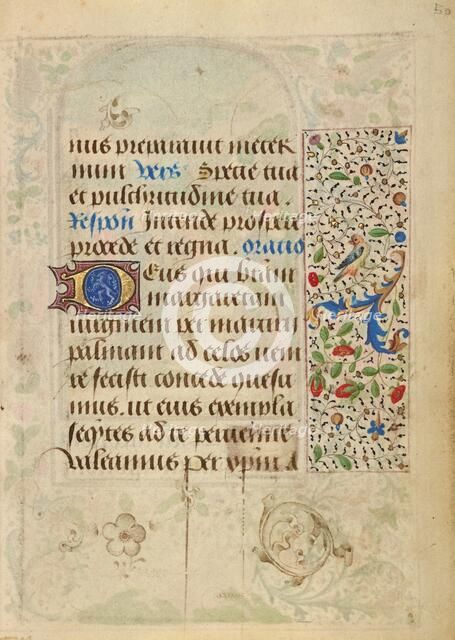 50
nus preparauit in eter
num Vers Specie tua
et pulchritudine tua.
Respon Intende prospere
procede et regna. oratio
Deus qui beatam
margaretam
uirginem per martirii
palmam ad celos ueni
re fecisti concede quesu
mus. ut eius exempla
seqntes ad te peruenire
valeamus per xpm
heritage
heritage
heritage